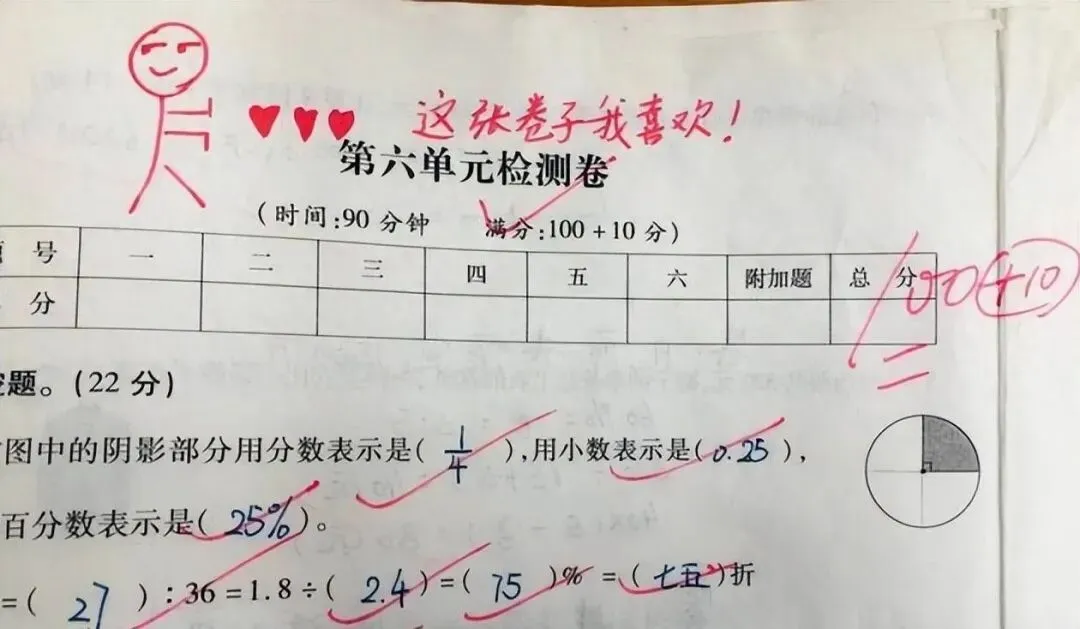 这张卷子我喜欢！
第六单元检测卷
（时间:90分钟 满分:100+10分）
号 一 二 三 四 五 六 附加题 总分
分 100+10
题。（22分）
图中的阴影部分用分数表示是( 1/4 ),用小数表示是(0.25),
百分数表示是(25%)。
=( 27 ):36=1.8÷(2.4)=(75)%=(七五)折